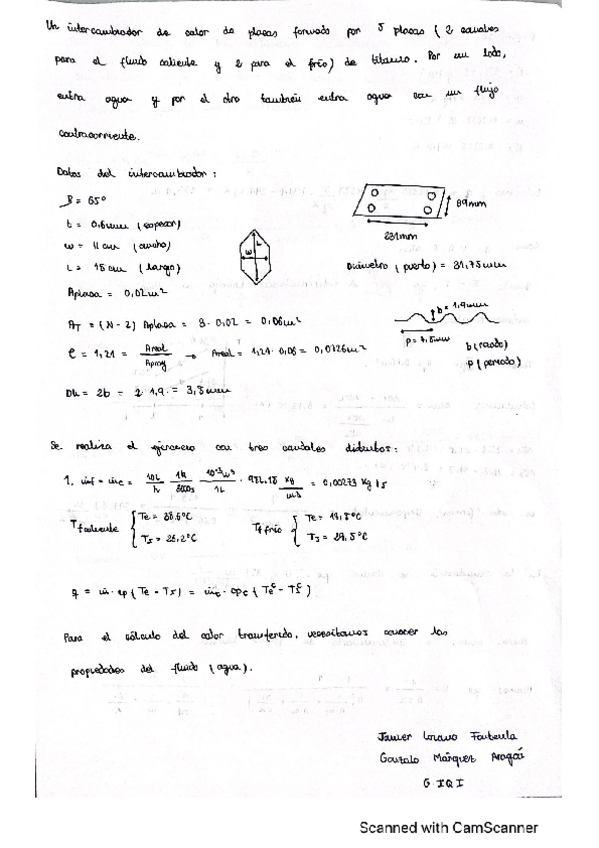 Un intercambiador de calor de placas formado por 5 placas ( 2 canales
para el fluido caliente y 2 para el frío) de titanio. Por un lado,
entra agua y por el otro también entra agua con un flujo
contracorriente.
Datos del intercambiador:
β = 65°
t = 0,6mm (espesor)
w = 11 cm (ancho)
L = 15 cm (largo)
Aplaca = 0,02m²
L
w
89mm
231mm
Diámetro (puerto) = 31,75mm
AT = (N - 2) Aplaca = 3 · 0,02 = 0,06m²
b = 1,9mm
b (rizado)
p (periodo)
= 1,21 = Areal / Aproy → Areal = 1,21 · 0,06 = 0,0726m²
Dh = 2b = 2 · 1,9 = 3,8mm
Se realiza el ejercicio con tres caudales distintos:
1. ṁf = ṁc = 10L/h · 1h/3600s · 10⁻³m³/1L · kg/m³ = 0,00273 kg/s
T caliente { Te = 38,6°C
Ts = 26,2°C
T frío {
q = ṁ · cp (Te - Ts) = ṁc · cpc (Teᶜ - Tsᶜ)
Para el cálculo del calor transferido, necesitamos conocer las
propiedades del fluido (agua).
Javier Lozano Fantecila
Gonzalo Márquez Aragó
G IQI
Scanned with CamScanner